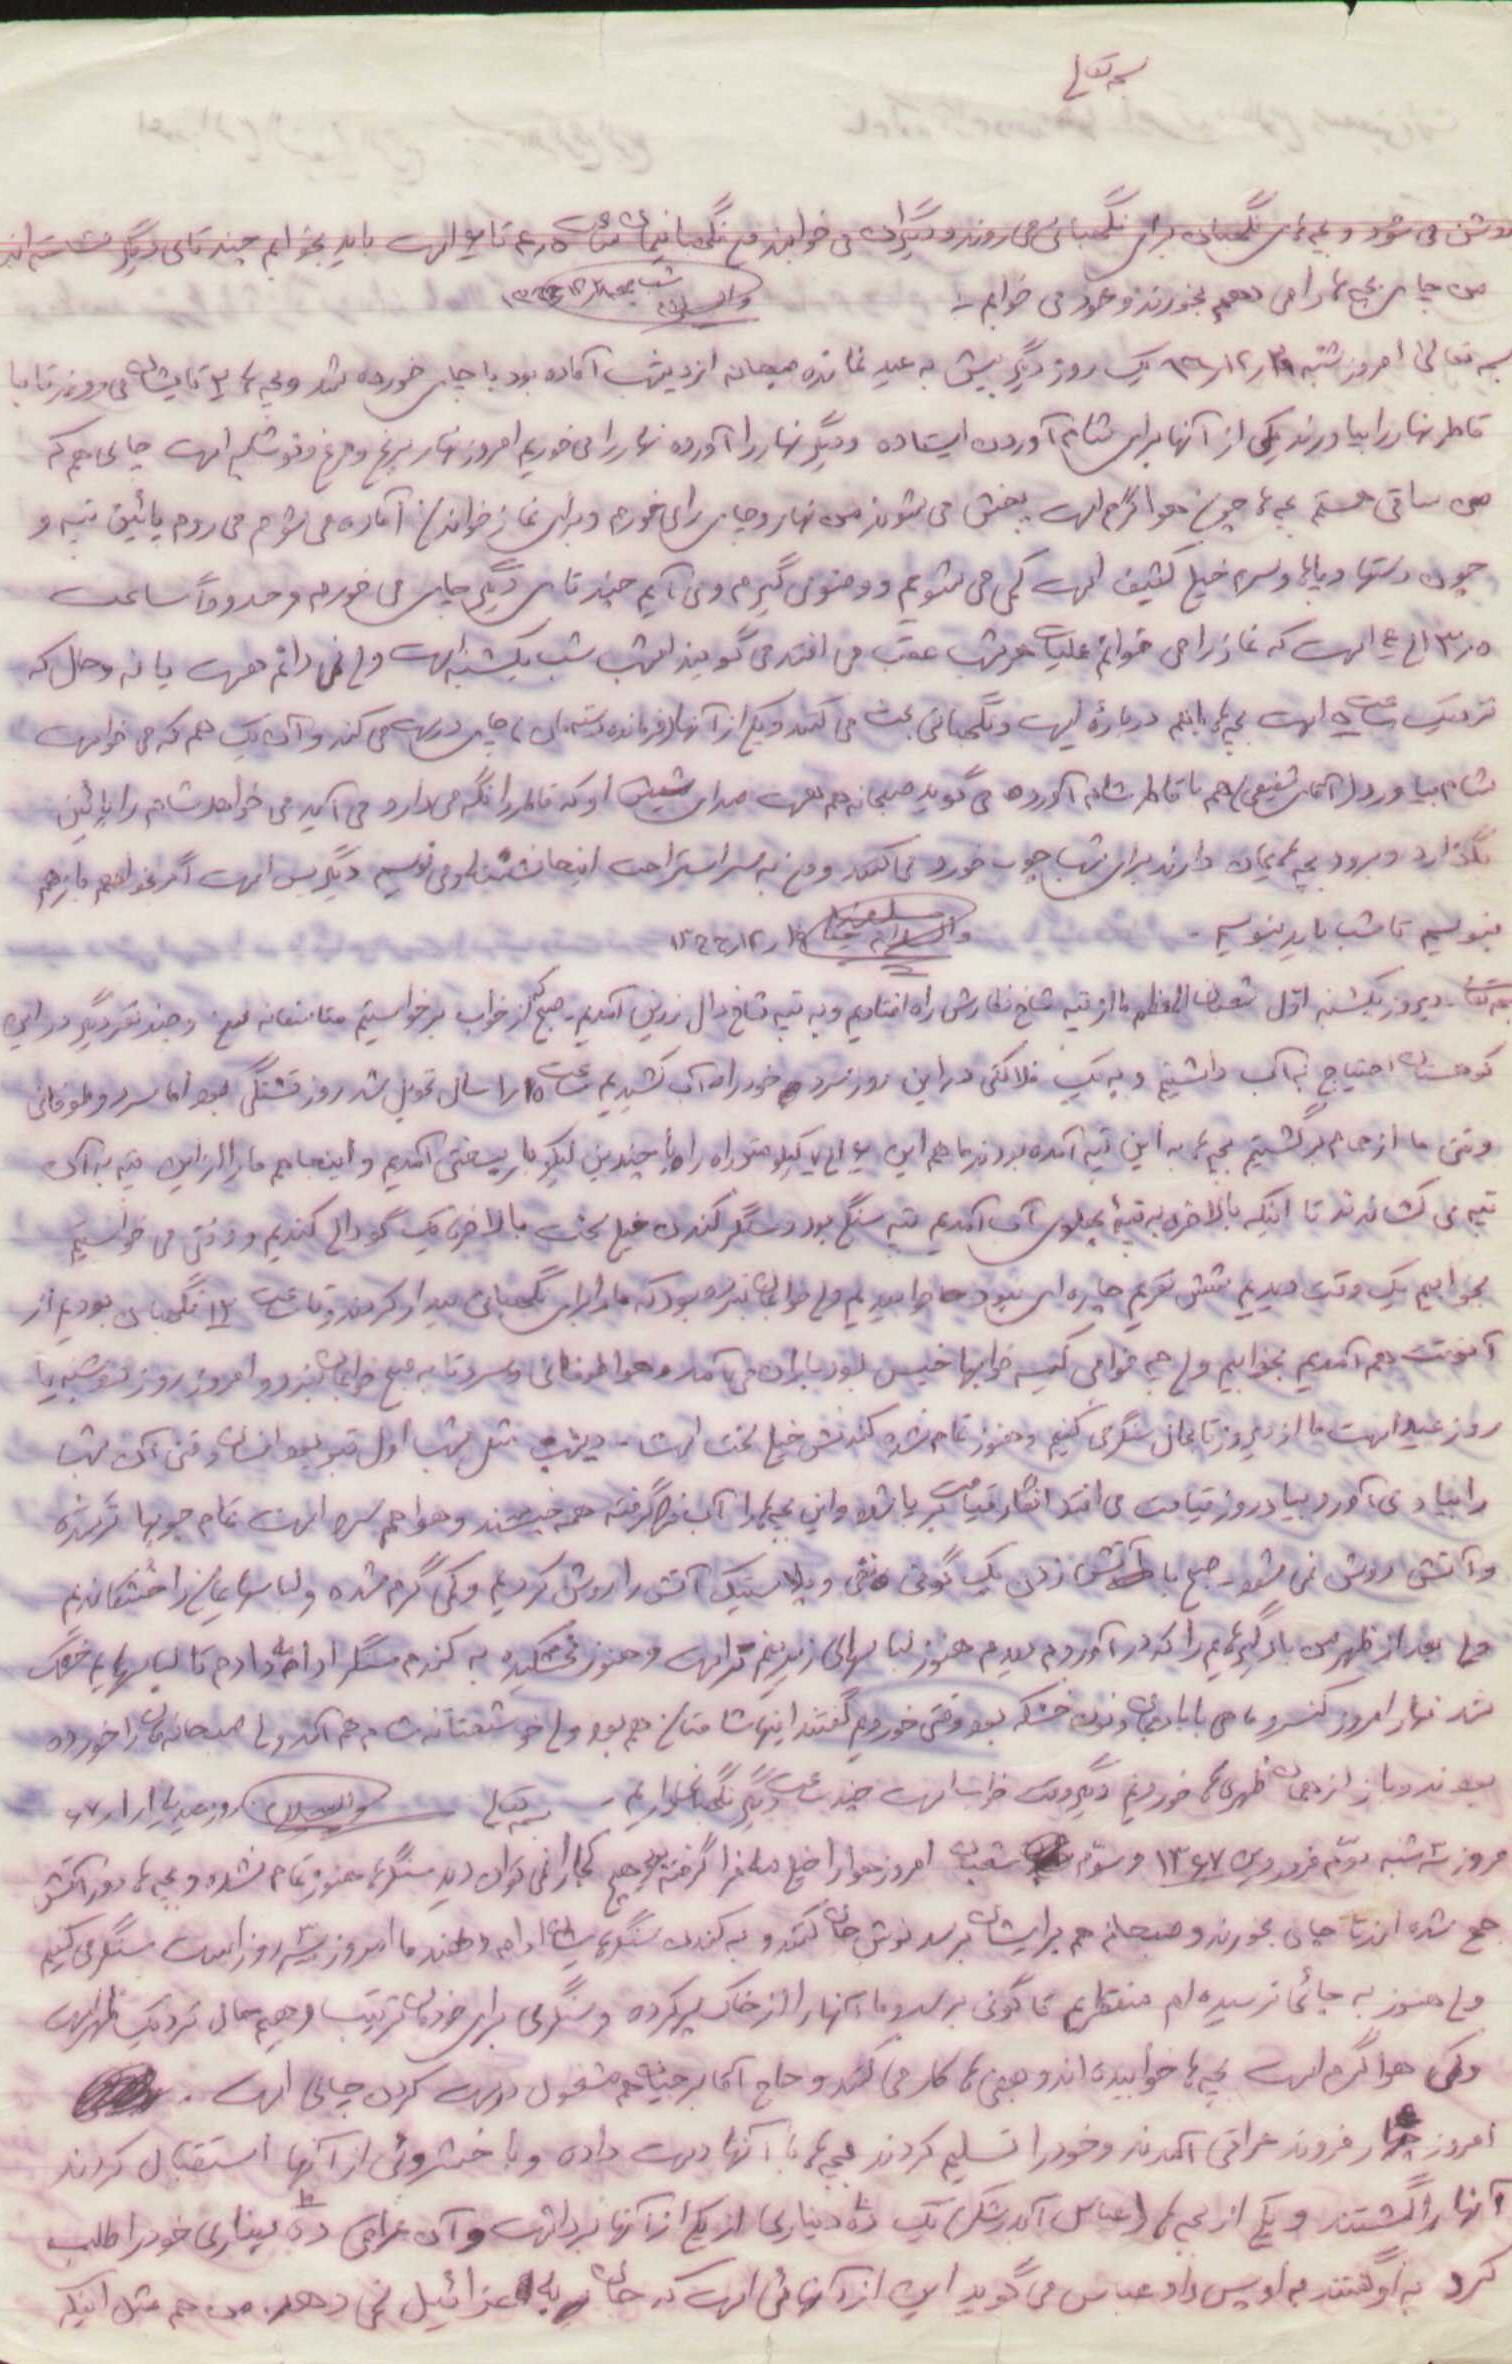 بسمه تعالی
روشن می شود و بچه های نگهبان برای نگهبانی می روند و دیگران می خوابند من نگهبانیمان ساعت ۴٫۵ تا ۶ است باید بخوابم چند تای دیگر نشسته اند
من چای بچه ها را می دهم بخورند و خود می خوابم -
والسلام
بسمه تعالی امروز شنبه ۲۹٫۱۲٫۶۶ یک روز دیگر بیش به عید نمانده صبحانه از دیشب آماده بود با چای خورده شد و بچه ها ۲ تایشان می روند تا با
قاطر نهار را بیاورند یکی از آنها برای شام آوردن ایستاده و دیگر نهار را آورده نهار را می خوریم امروز نهار برنج و مرغ و نوشابه است چای هم که
من ساقی هستم بچه ها چون هوا گرم است پخش می شوند من نهار و چای را می خورم و برای نماز خواندن آماده می شوم می روم پائین تپه و
چون دستها و پاها و سرم خیلی کثیف است کمی می شویم و وضو می گیرم و می آیم چند تای دیگر چای می خورم و حدوداً ساعت
۳٫۵ الی ۴ است که نماز را می خوانم عملیات هر شب عقب می افتد می گویند امشب شب یکشنبه است ولی نمی دانم هست یا نه و حال که
نزدیک ساعت ۵ است بچه ها باهم درباره پست و نگهبانی بحث می کنند و یکی از آنها فرمانده دسته مان چای درست می کند و آن یک هم که می خواست
شام بیاورد (آقای شفیعی) هم با قاطر شام آورده می گوید صبحانه هم هست صدای شیش او که قاطر را نگه می دارد می آید می خواهد شام را پائین
بگذارد و برود بچه هایمان دارند برای شب چوب خورد می کنند و من به سر استراحت اینجا نشسته ام و می نویسم دیگر بس است اگر بخواهم باز هم
بنویسم تا شب باید بنویسم - والسلام
بسمه تعالی - دیروز یکشنبه اول شعبان المعظم ما از تپه شاخ شمیرش راه افتادیم و به تپه شاخ دال زرین آمدیم - صبح که از خواب برخواستیم متأسفانه من و چند نفر دیگر در این
کوهستان احتیاج به آب داشتیم و به یک فلاکتی در این روز سرد خود را به آب کشیدیم ساعت سال تحویل شد روز قشنگی بود اما سرد و طوفانی
وقتی ما از حمام برگشتیم بچه ها به این تپه آمده بودند ما هم این ۶ الی ۷ کیلومتر راه را با چندین کیلو بار بسختی آمدیم و اینجا هم ما را از این تپه به آن
تپه می کشاندند تا اینکه بالاخره به تپه پهلوی آن آمدیم تپه سنگی بود و سنگر کندن خیلی سخت بالاخره یک گودالی کندیم و وقتی می خواستیم
بخوابیم یک وقت دیدیم شش نفریم چاره ای نبود ما خوابیدیم ولی خوابمان نبرده بود که ما را برای نگهبانی بیدار کردند و تا ساعت ۱۲ نگهبانی بودیم از
آنوقت هم آمدیم بخوابیم ولی چه خوابی کیسه خوابها خیس بود باران می آمد و هوا طوفانی و سرد تا به صبح خوابمان نبرد و امروز روز دوشنبه یا
روز عید است ما از دیروز تا بحال سنگر می کنیم و هنوز تمام نشده کندنش خیلی سخت است - دیشب مثل شب اول قبر بود انسان وقتی آن شب
را بیاد می آورد بیاد روز قیامت می افتد انگار قیامت برپا شده و این بچه ها را آب فرا گرفته همه خیسند و هوا هم سرد است تمام چوبها تر شده
و آتش روشن نمی شود - صبح با آتش زدن یک گونی نفتی و پلاستیک آتش را روشن کردیم و کمی گرم شده و لباسهایمان را خشکاندیم
ولی بعد از ظهر من بادگیرهایم را که در آوردم دیدم هنوز لباسهای زیریم تر است و هنوز نخشکیده به کندن سنگر ادامه دادم تا لباسهایم خشک
شد نهار امروز کنسرو ماهی با بادمجان و نون خشکه بود وقتی خوردیم گفتند اینها شامتان هم بود ولی خوشبختانه شام هم آمد ولی صبحانه مان را خورده
بودند و باز از همان ظهری ها خوردیم دیگر وقت خواب است چند ساعت دیگر نگهبانی داریم - بسمه تعالی والسلام روز عید ۱٫۱٫۶۷
امروز سه شنبه دوم فروردین ۱۳۶۷ و سوم شعبان امروز هوا را خیلی مه فرا گرفته بود هیچ کجا را نمی توان دید سنگرها هنوز تمام نشده و بچه ها دور آتش
جمع شده اند تا چای بخورند و صبحانه هم برایشان برسد نوش جان کنند و به کندن سنگرهایشان ادامه دهند ما امروز سه روز است سنگر می کنیم
ولی هنوز به جائی نرسیده ام منتظریم تا گونی برسد و ما آنها را از خاک پر کرده و سنگری برای خودمان ترتیب دهیم حال نزدیک ظهر است
و کمی هوا گرم است بچه ها خوابیده اند و بعضی ها کار می کنند و حاج آقا برجیان هم مشغول درست کردن چای است .
امروز چهار فروند عراقی آمدند و خود را تسلیم کردند بچه ها با آنها دست داده و با خشروئی از آنها استقبال کردند
آنها را گشتند و یکی از بچه ها (عباس یک ده دیناری از یکی از آنها برداشت و آن عراقی ده دیناری خود را طلب
کرد به او گفتند به او پس داد عباس می گوید این از آنهائی است که جان به عزرائیل نمی دهد. من هم مثل اینکه